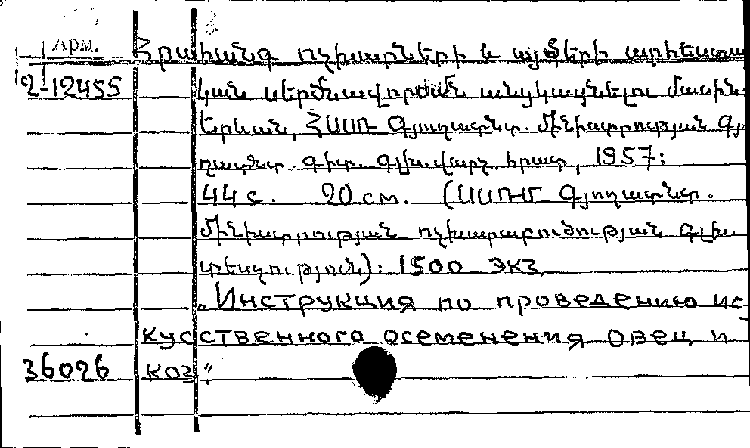 Арм. Հրահանգ ոչխարների և այծերի արհեստա
2-12455 կան սերմնավորման անցկացնելու մասին:
Երևան, ՀՍՍՌ Գյուղատնտ. Մինիստրության Գյու
ղատնտ. գիտ. գլխ. վարչ. հրատ, 1957:
44 с. 20 см. (ՍՍՌՄ Գյուղատնտ.
Մինիստրության ոչխարաբուծության գլխ.
վարչություն): 1500 экз
„Инструкция по проведению ис
кусственного осеменения овец и
36026 коз"